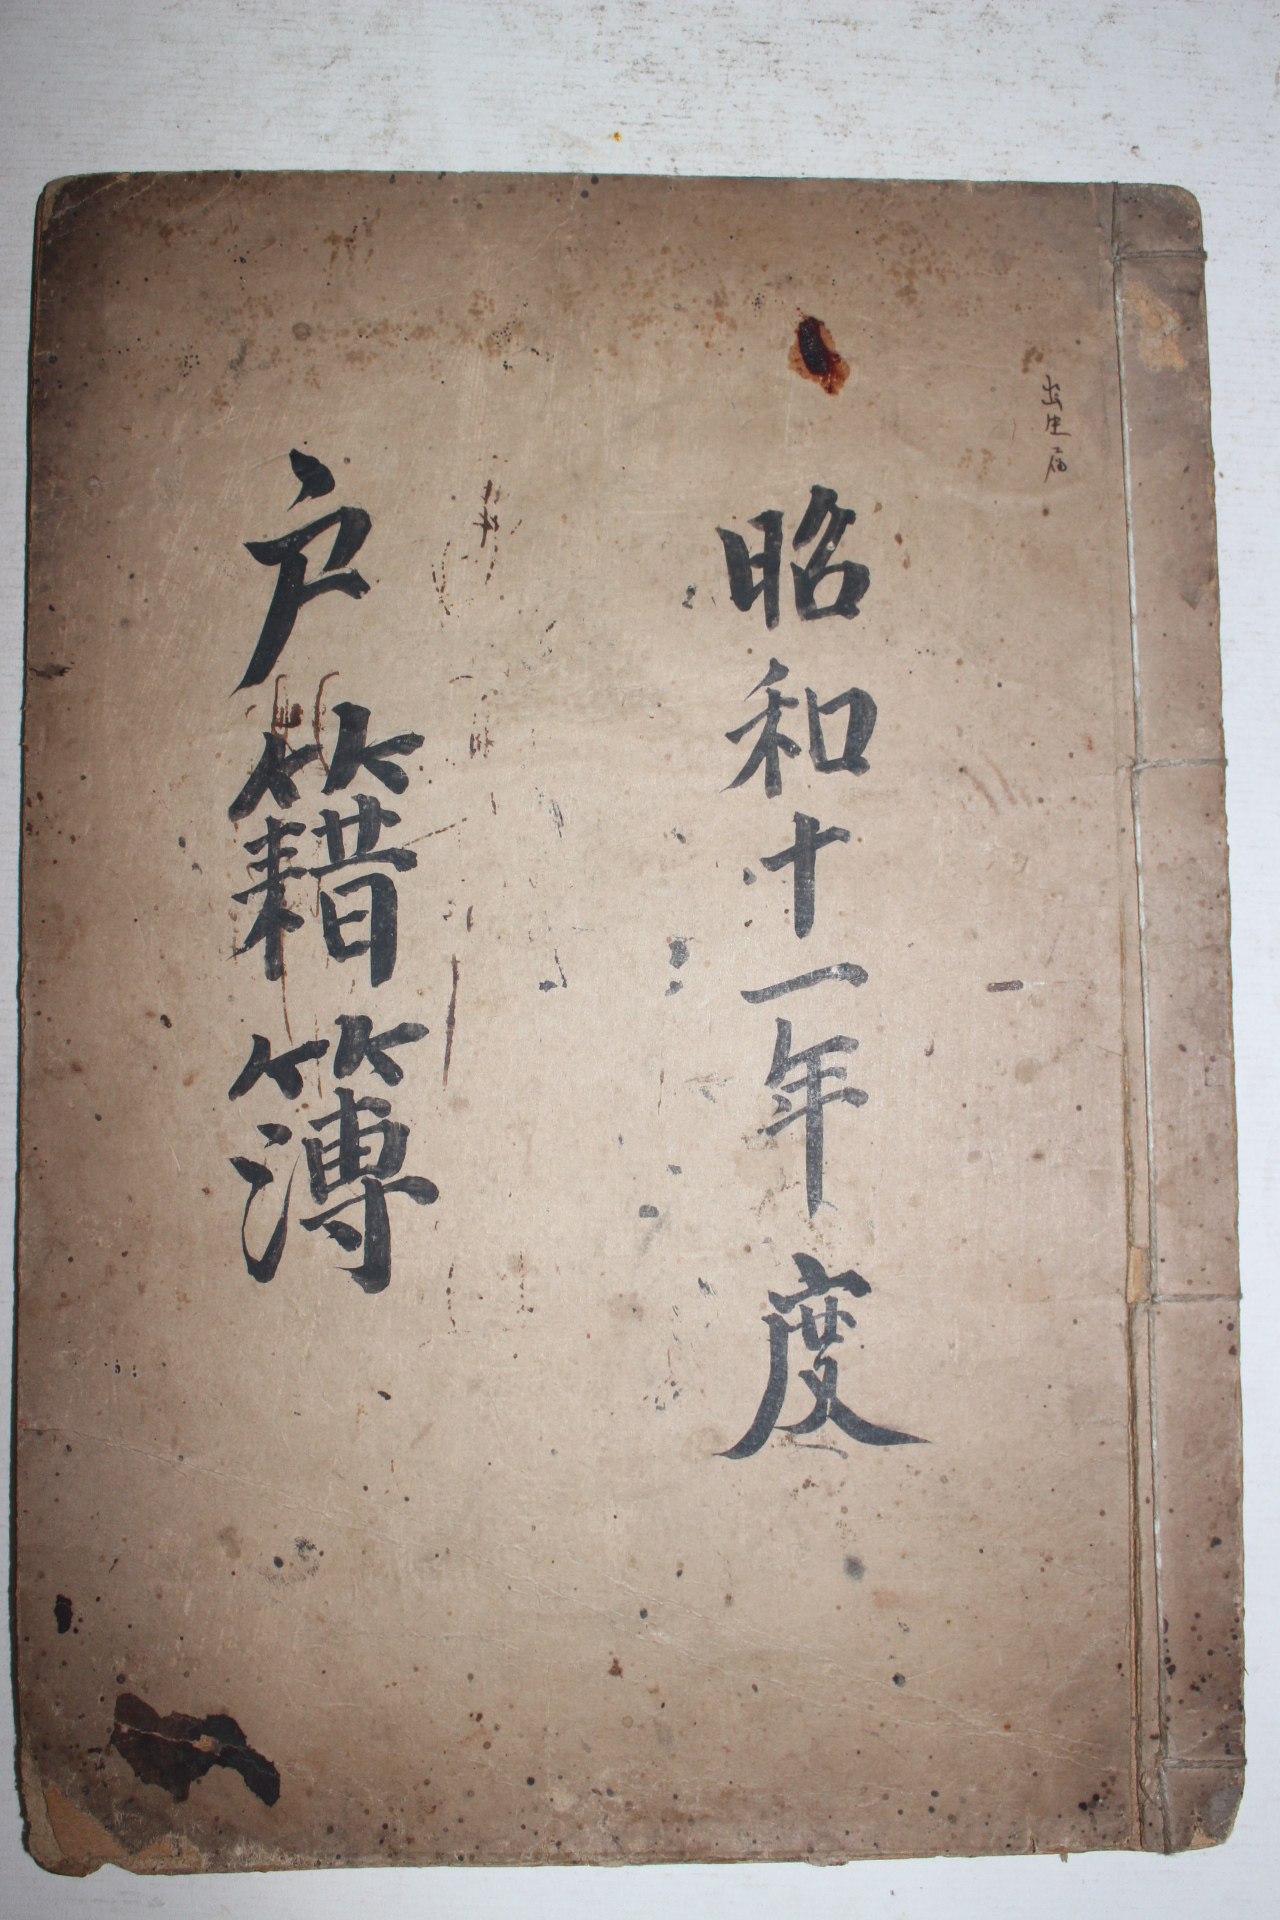 出生届
昭和十一年度
戶籍簿